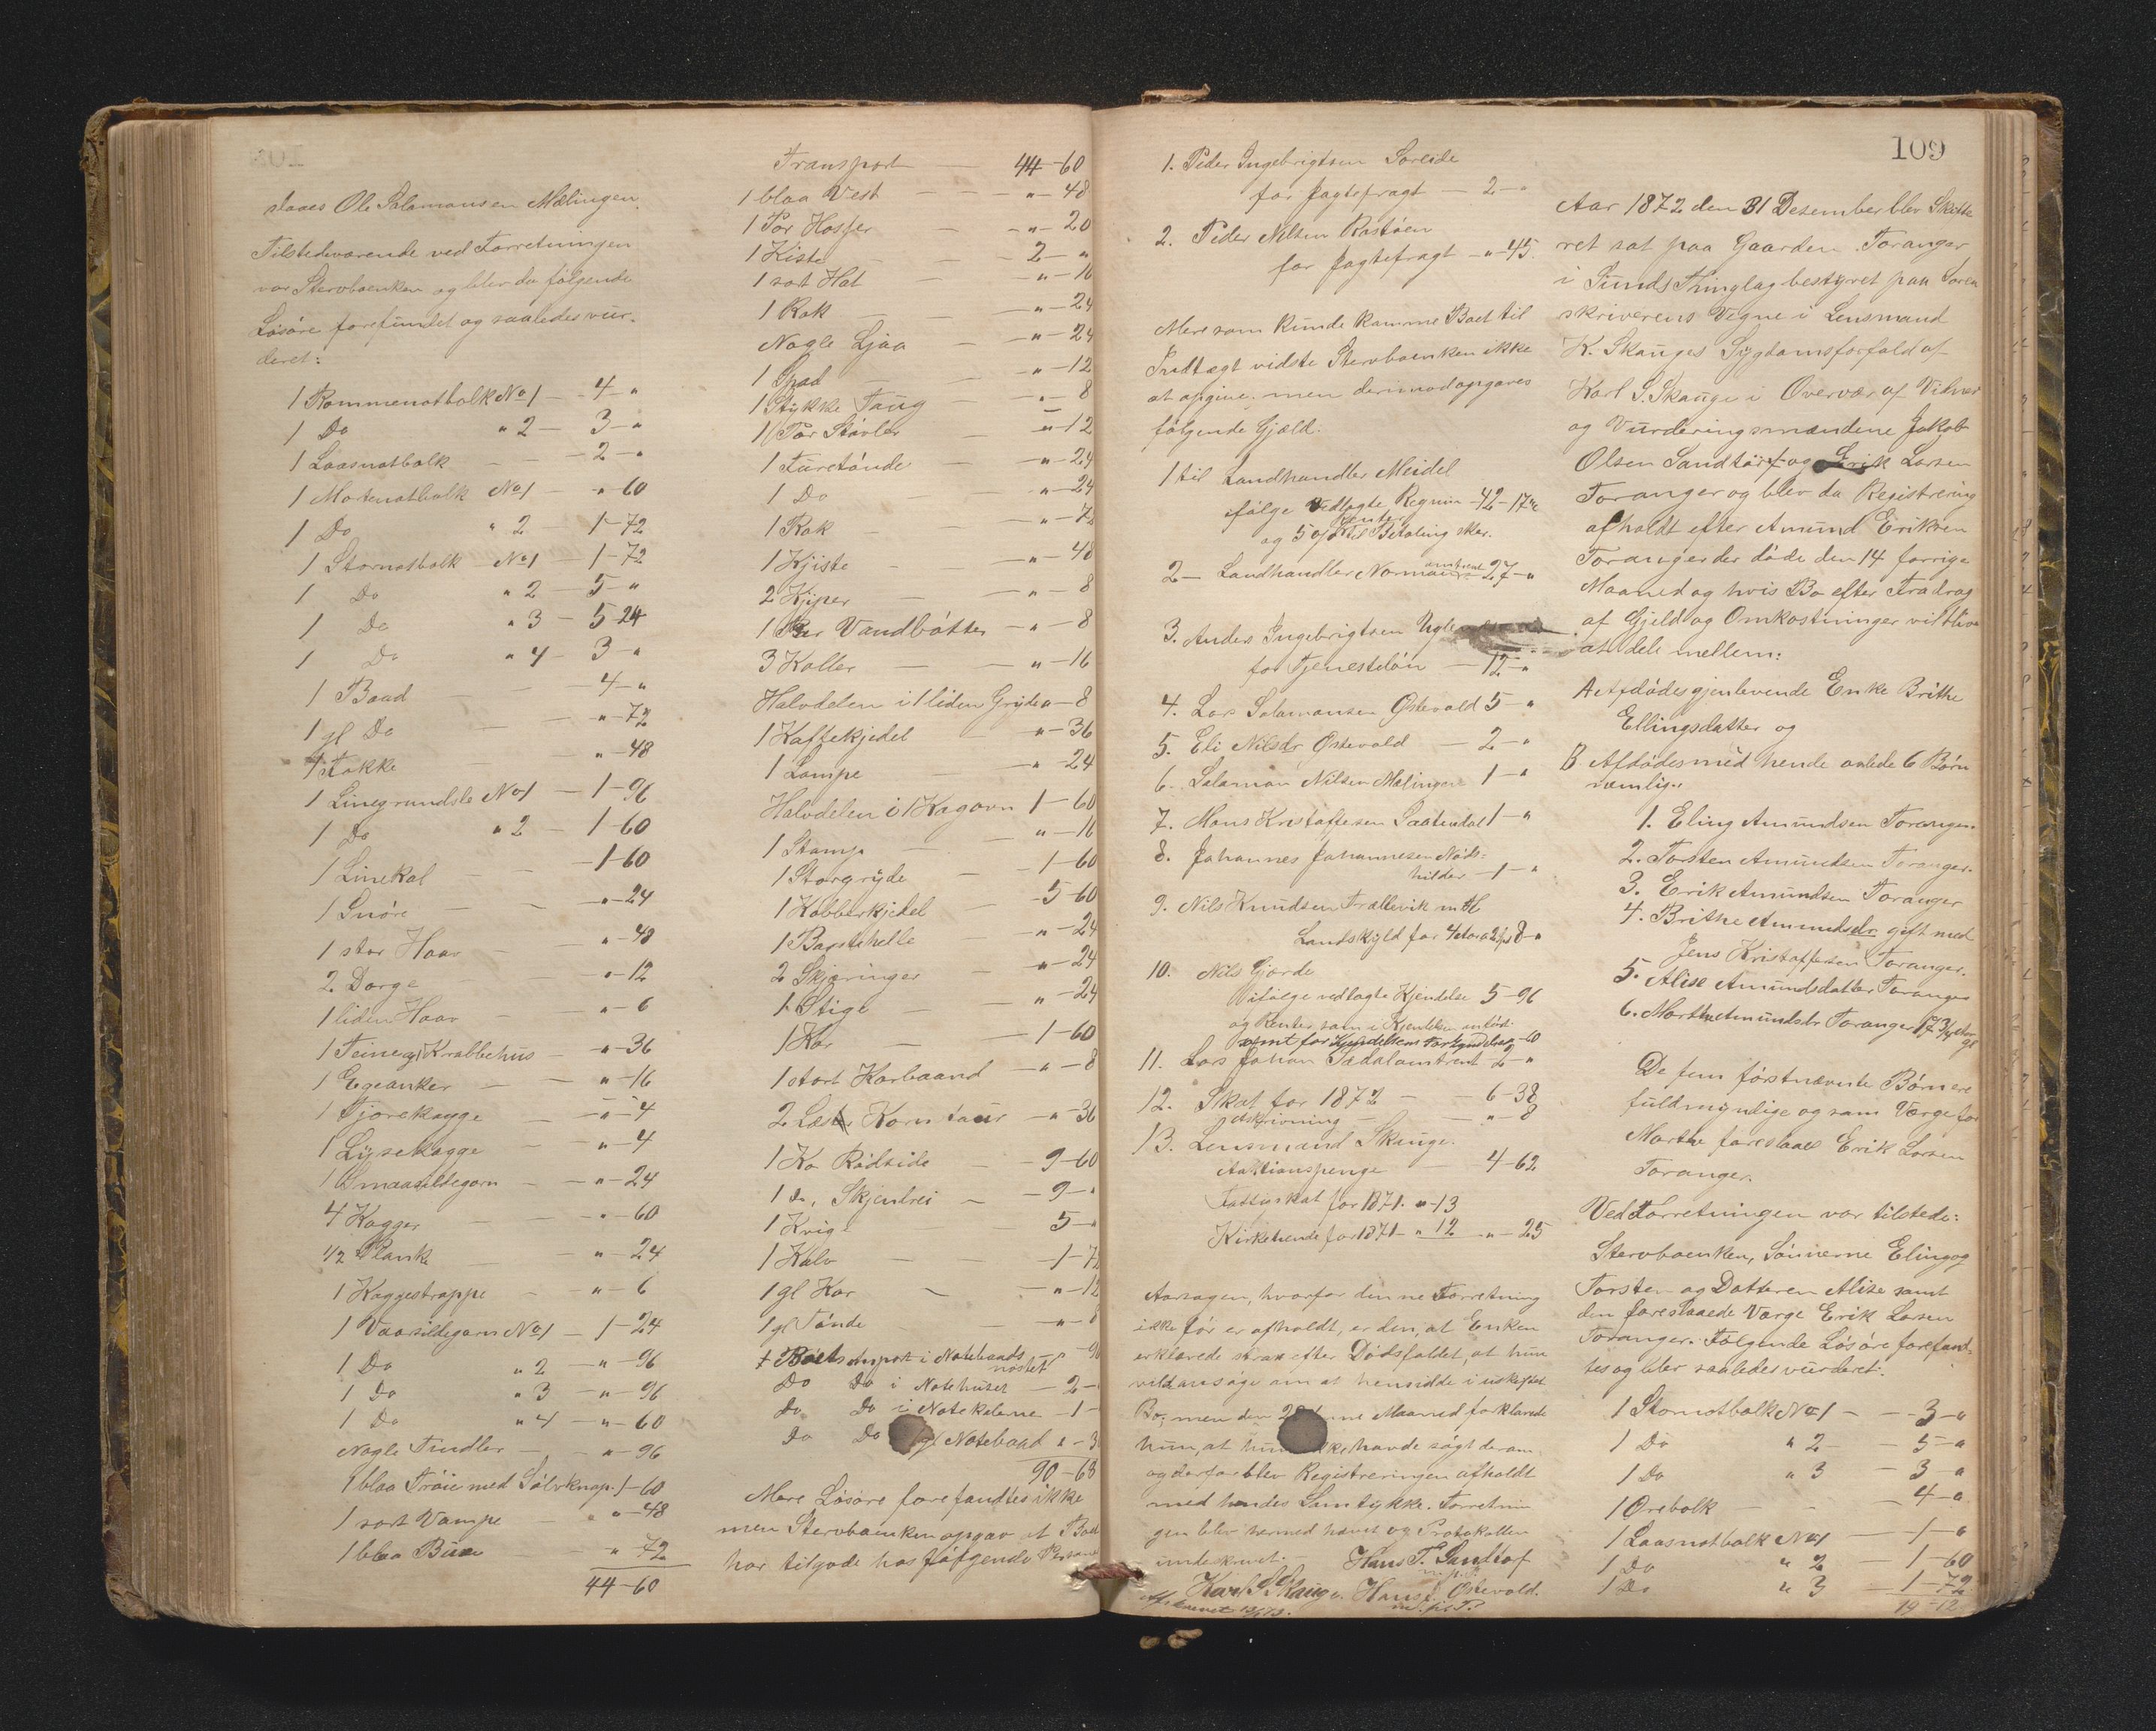 slaaes Ole Salamonsen Mælingen.
Tilstedeværende ved Forretningen
var Stervboenken og blev da følgende
Løsøre forefundet og saaledes vur-
deret:
1 Rommenotbolk No 1 – 4 – "
1 Do " 2 – 3 – "
1 Laasnotbolk – 2 – "
1 Mortenotbolk No 1 – " – 60
1 Do " 2 – 1 – 72
1 Stornotbolk No 1 – 1 – 72
1 Do " 2 – 5 – "
1 Do " 3 – 5 – 24
1 Do " 4 – 3 – "
1 Baad – 4 – "
1 gl Do – " – 72
1 Stokke – " – 48
1 Linegrundsle No 1 – 1 – 96
1 Do " 2 – 1 – 60
1 Linekol – 1 – 60
1 Snøre – " – 24
1 stor Haav – " – 48
2 Dorge – " – 12
1 liden Haav – " – 6
1 Teine og 1 Krabbehus – " – 36
1 Egeanker – " – 16
1 Tjorekagge – " – 4
1 Lysekagge – " – 4
1 Smaasildegarn – " – 24
4 Kagger – " – 60
1/2 Plank – " – 24
1 Kaggestrappe – " – 6
1 Vaarsildegarn No 1 – 1 – 24
1 Do " 2 – " – 96
1 Do " 3 – " – 96
1 Do " 4 – " – 60
Nogle Tindler – " – 96
1 blaa Trøie med Sølvknap. 1 – 60
1 sort Vampe – " – 48
1 blaa Buxe – " – 72
44 – 60
Transport 44 – 60
1 blaa Vest – " – 48
1 Par Hosser – " – 20
1 Kiste – 2 – "
1 sort Hat – " – 16
1 Rok – " – 24
Nogle Ljaa – " – 24
1 Spad – " – 12
1 Stykke Taug – " – 8
1 Par Støvler – " – 12
1 Furetønde – " – 24
1 Do – " – 24
1 Rok – " – 72
1 Kjiste – " – 48
2 Kjiper – " – 8
1 Par Vandbøtter – " – 8
3 Koller – " – 16
Halvdelen i 1 liden Gryde " – 8
1 Kaffekjedel – " – 36
1 Lampe – " – 24
Halvdelen i 1 Kagovn 1 – 60
1 Stamp – " – 16
1 Storgryde – 1 – 60
1 Kobberkjedel – 5 – 60
1 Bagstehelle – " – 24
2 Skjæringer – " – 24
1 Stige – " – 24
1 Kar – 1 – 60
1 stort Karbaand – " – 8
2 Læs Korn taur – " – 36
1 Ko Rødside – 9 – 60
1 Do, Skjenbrei – 9 – "
1 Kvige 5 – "
1 Kalv – 1 – 72
1 gl Kar – " – 12
1 gl Tønde – " – 8
+ Boets Anpart i Notebaads
nøstet – " – 96
Do Do i Notehuset – 2 –
Do Do i Notekolerne – 1 –
Do Do gl Notebaad " – 3
90 – 68
Mere Løsøre forefandtes ikke
men Stervboenken opgav at Boet
har tilgode hos følgende Person
1. Peder Ingebrigtsen Soreide
for Jagtefragt – 2 – "
2. Peder Nilsen Rostøen
for Jagtefragt – " – 45.
Mere som kunde komme Boet til
Indtægt vidste Stervboenken ikke
at opgive, men derimod opgaves
følgende Gjæld:
1 til Landhandler Meidel
ifølge vedlagte Regnin – 42 – 17
og 5 o/o Renter til Betaling sker.
2 – Landhandler Norman omtrent 27 – "
3. Anders Ingebrigtsen
for Tjenesteløn – 12 – "
4. Lars Salamonsen Østevold 5 – "
5. Eli Nilsdr Østevold – 2 – "
6. Salamon Nilsen Mælingen 1 – "
7. Mons Kristofersen Saatendal 1 – "
8. Johannes Johannesen Nøds-
hilder – 1 – "
9. Nils Knudsen Trællevik
Landskyld for 8 – "
10. Nils Gjørde
ifølge vedlagte Kjendelse 5 – 96
og Renter som i Kjendelsen anført
samt for Kjendelsens Forkyndelse – 60
11. Lars Johan Sædal omtrent 2 – "
12. Skat for 1872 – 6 – 38
Udskrivning – " – 8
13. Lensmand Skauge.
Auktionspenge 4 – 62
Fattigskat for 1871. " – 13
Kirketiende for 1871 – " 12 – " – 25
Aarsagen, hvorfor denne Forretning
ikke før er afholdt, er den, at Enken
erklærede strax efter Dødsfaldet, at hun
vild ansøge om at hensidde i uskiftet
Bo; men den Maaned forklarede
hun, at hun ikke havde søgt derom
og derfor blev Registreringen afholdt
med hendes Samtykke. Forretnin
gen blev hermed hævet og Protokollen
underskrevet. – Hans T. Sandtof
m.p.P.
Karl S. Skauge. Hans J. Østevold.
m. fil P.
Afskrevet
109
Aar 1872 den 31 Desember blev Skifte
ret sat paa Gaarden Toranger
i Sunds Thinglag bestyret paa Soren
skriverens Vegne i Lensmand
K. Skauges Sygdomsforfald af
Karl S. Skauge i Overvær af Vidner
og Vurderingsmændene Jakob
Olsen Sandtorf og Erik Larsen
Toranger og blev da Registrering
afholdt efter Amund Eriksen
Toranger der døde den 14 forrige
Maaned og hvis Bo efter Fradrag
af Gjeld og Omkostninger vil blive
at dele mellem:
A Afdødes gjenlevende Enke Brithe
Ellingsdatter og
B Afdødes med hende avlede 6 Børn
nemlig:
1. Eling Amundsen Toranger.
2. Torsten Amundsen Toranger.
3. Erik Amundsen Toranger
4. Brithe Amundsdr gift med
Jens Kristoffersen Toranger.
5. Alise Amundsdatter Toranger
6. Marthe Amundsdr Toranger 17 3/4 Aar
gl
De fem førstnævnte Børn ere
fuldmyndige og som Verge for
Marthe foreslaaes Erik Larsen
Toranger.
Ved Forretningen var tilstede:
Stervboenken, Sønnerne Eling og
Torsten og Datteren Alise samt
den foreslaaede Verge Erik Larsen
Toranger. Følgende Løsøre forefand-
tes og blev saaledes vurderet:
1 Stornotbolk No 1 – 3 – "
1 Do " 2 – 5 – "
1 Do " 3 – 3 – "
1 Ørebolk – 4 – "
1 Laasnotbolk No 1 – 1 – "
1 Do " 2 – 1 – 60
1 Do " 3 – 1 – 72
19 – 12